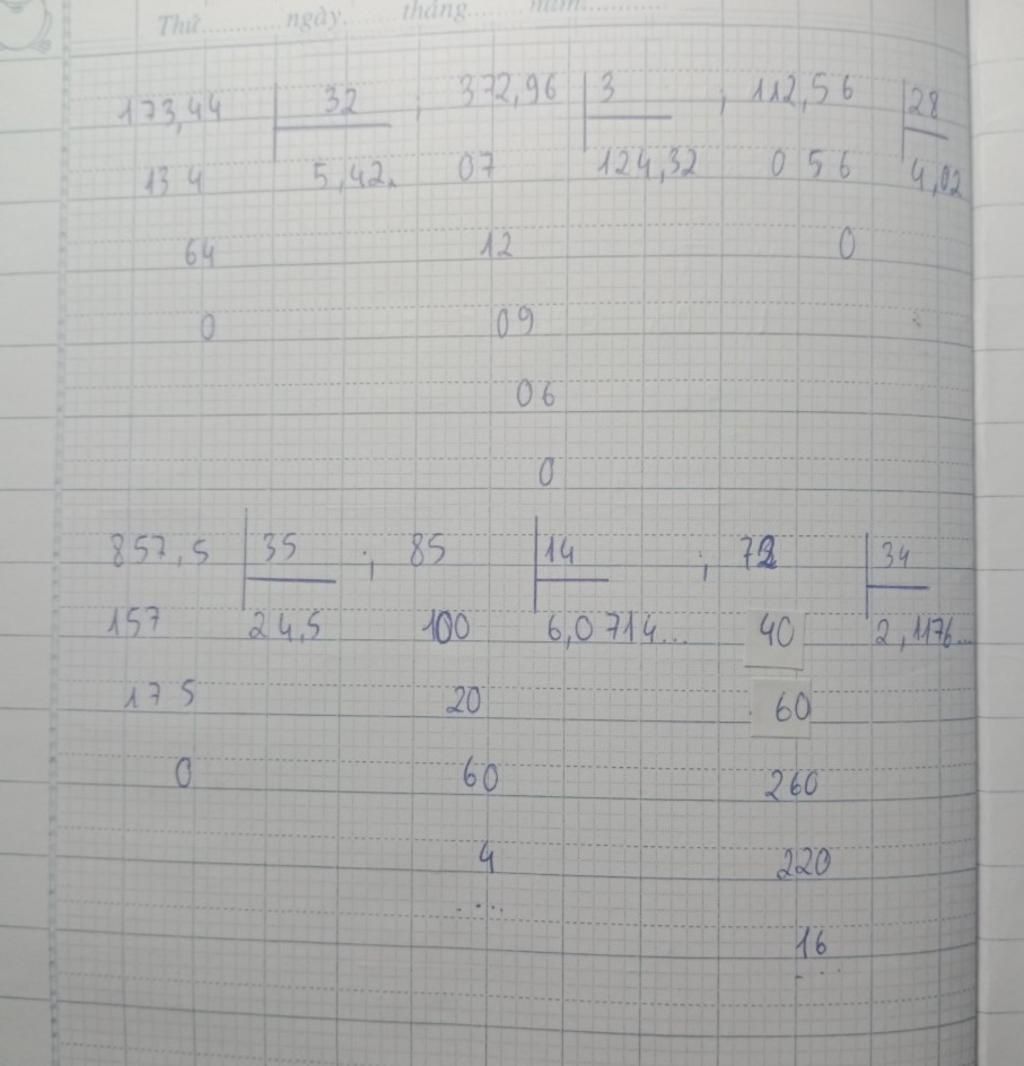 Thứ......... ngày......... tháng......... năm............
173,44 32 , 372,96 3 , 112,56 28
134 5,42. 07 124,32 056 4,02
64 12 0
0 09
06
0
857,5 35 ; 85 14 ; 72 34
157 24,5 100 6,0714... 40 2,1176...
175 20 60
0 60 260
4 220
....
16
....